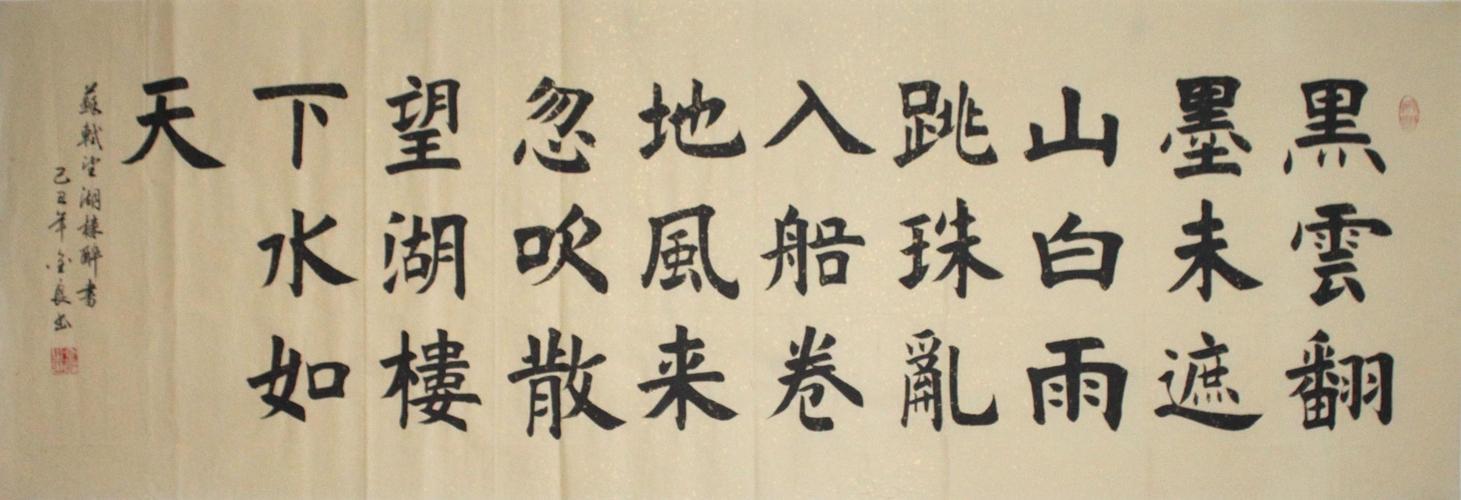 黑雲翻
墨未遮
山白雨
跳珠亂
入船卷
地風来
忽吹散
望湖樓
下水如
天
蘇軾望湖樓醉書
己丑年金良書